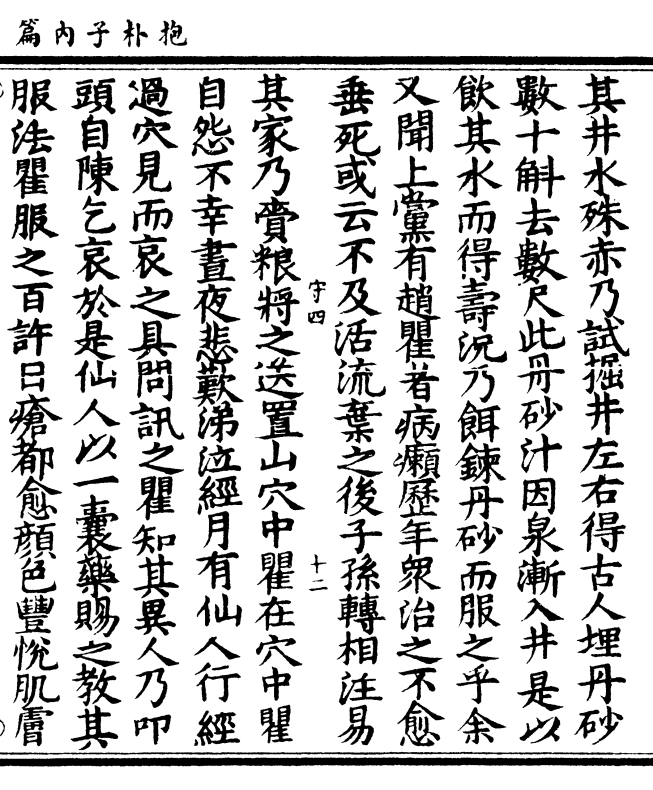 抱朴子內篇
其井水殊赤乃試掘井左右得古人埋丹砂
數十斛去數尺此丹砂汁因泉漸入井是以
飲其水而得壽況乃餌鍊丹砂而服之乎余
又聞上黨有趙瞿者病癩歷年眾治之不愈
垂死或云不及活流棄之後子孫轉相注易
守四
十二
其家乃齎粮將之送置山穴中瞿在穴中瞿
自怨不幸晝夜悲歎涕泣經月有仙人行經
過穴見而哀之具問訊之瞿知其異人乃叩
頭自陳乞哀於是仙人以一囊藥賜之教其
服法瞿服之百許日瘡都愈顏色豐悅肌膚